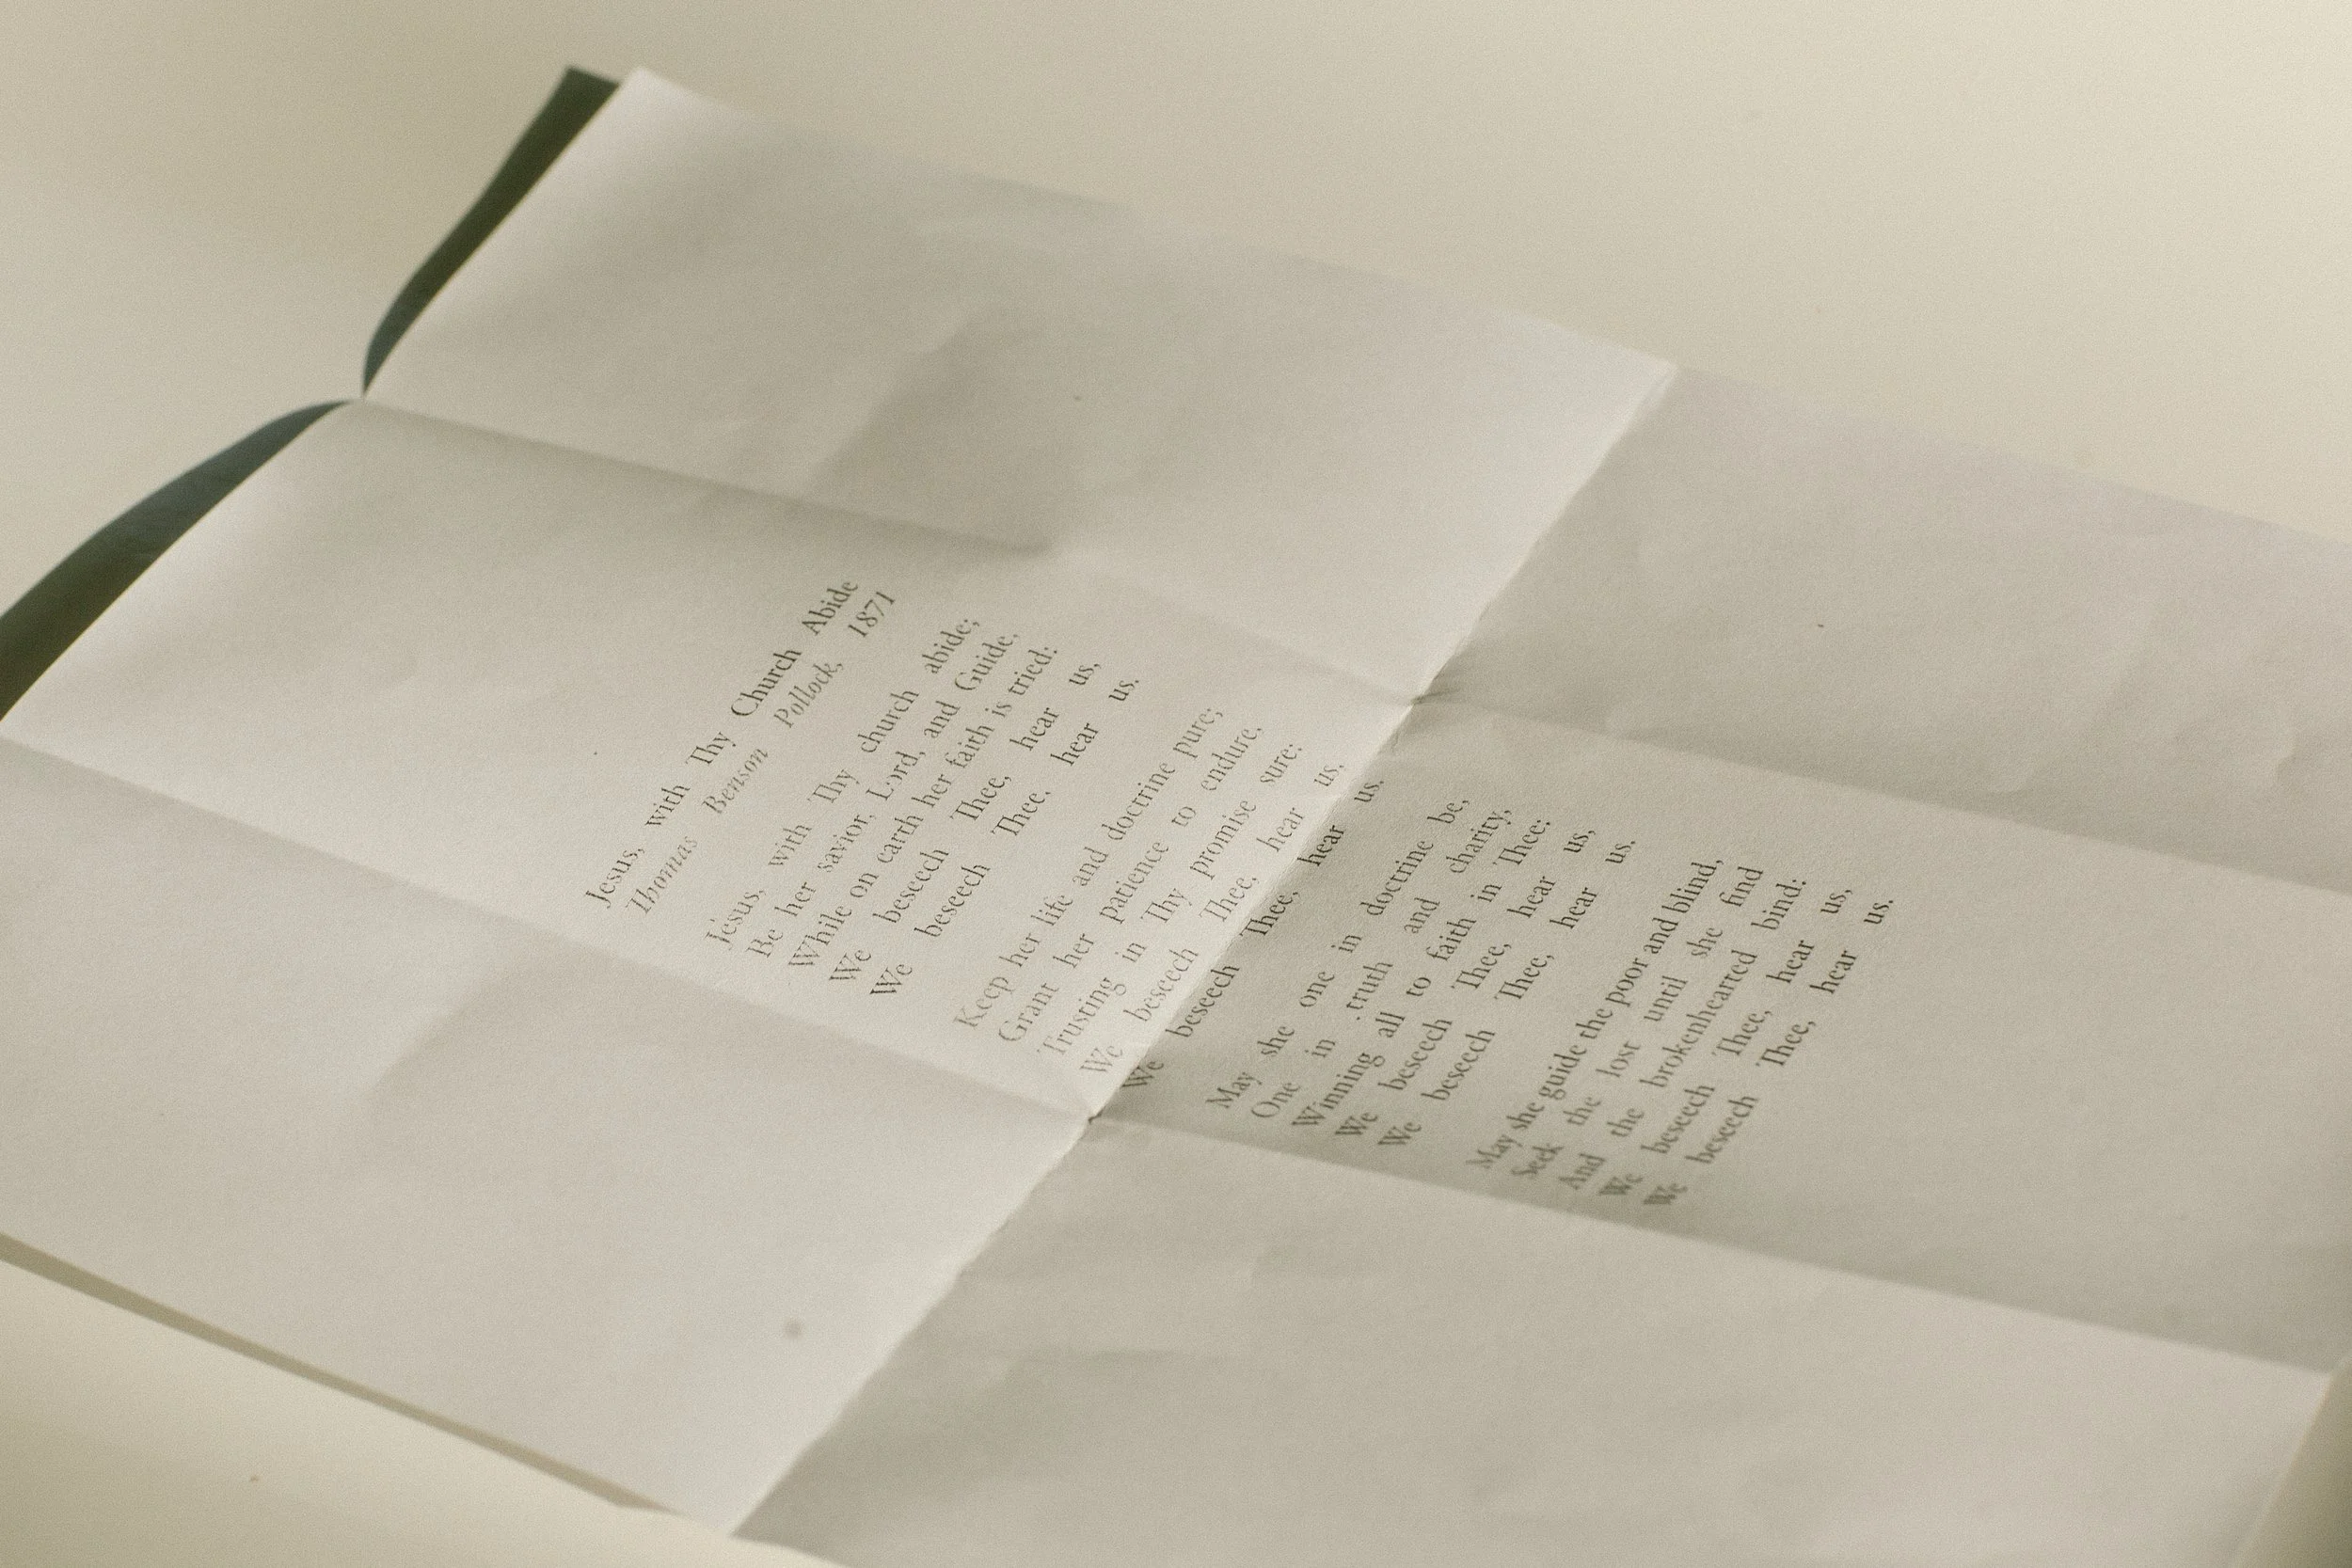 Jesus, with Thy Church Abide
Thomas Benson Pollock, 1871
Jesus, with Thy church abide;
Be her savior, Lord, and Guide,
While on earth her faith is tried:
We beseech Thee, hear us,
We beseech Thee, hear us.
Keep her life and doctrine pure;
Grant her patience to endure,
Trusting in Thy promise sure:
We beseech Thee, hear us,
We beseech Thee, hear us.
May she one in doctrine be,
One in .truth and charity,
Winning all to faith in Thee:
We beseech Thee, hear us,
We beseech Thee, hear us.
May she guide the poor and blind,
Seek the lost until she find
And the brokenhearted bind:
We beseech Thee, hear us,
We beseech Thee, hear us.